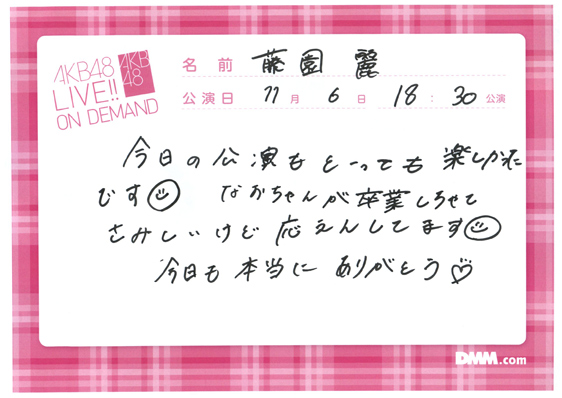 AKB48
LIVE!!
ON DEMAND
AKB
48
名前 藤園 麗
公演日 11月 6日 18:30公演
今日の公演もとっても楽しかった
です なおちゃんが卒業しちゃて
さみしいけど応えんしてます
今日も本当にありがとう♡
DMM.com